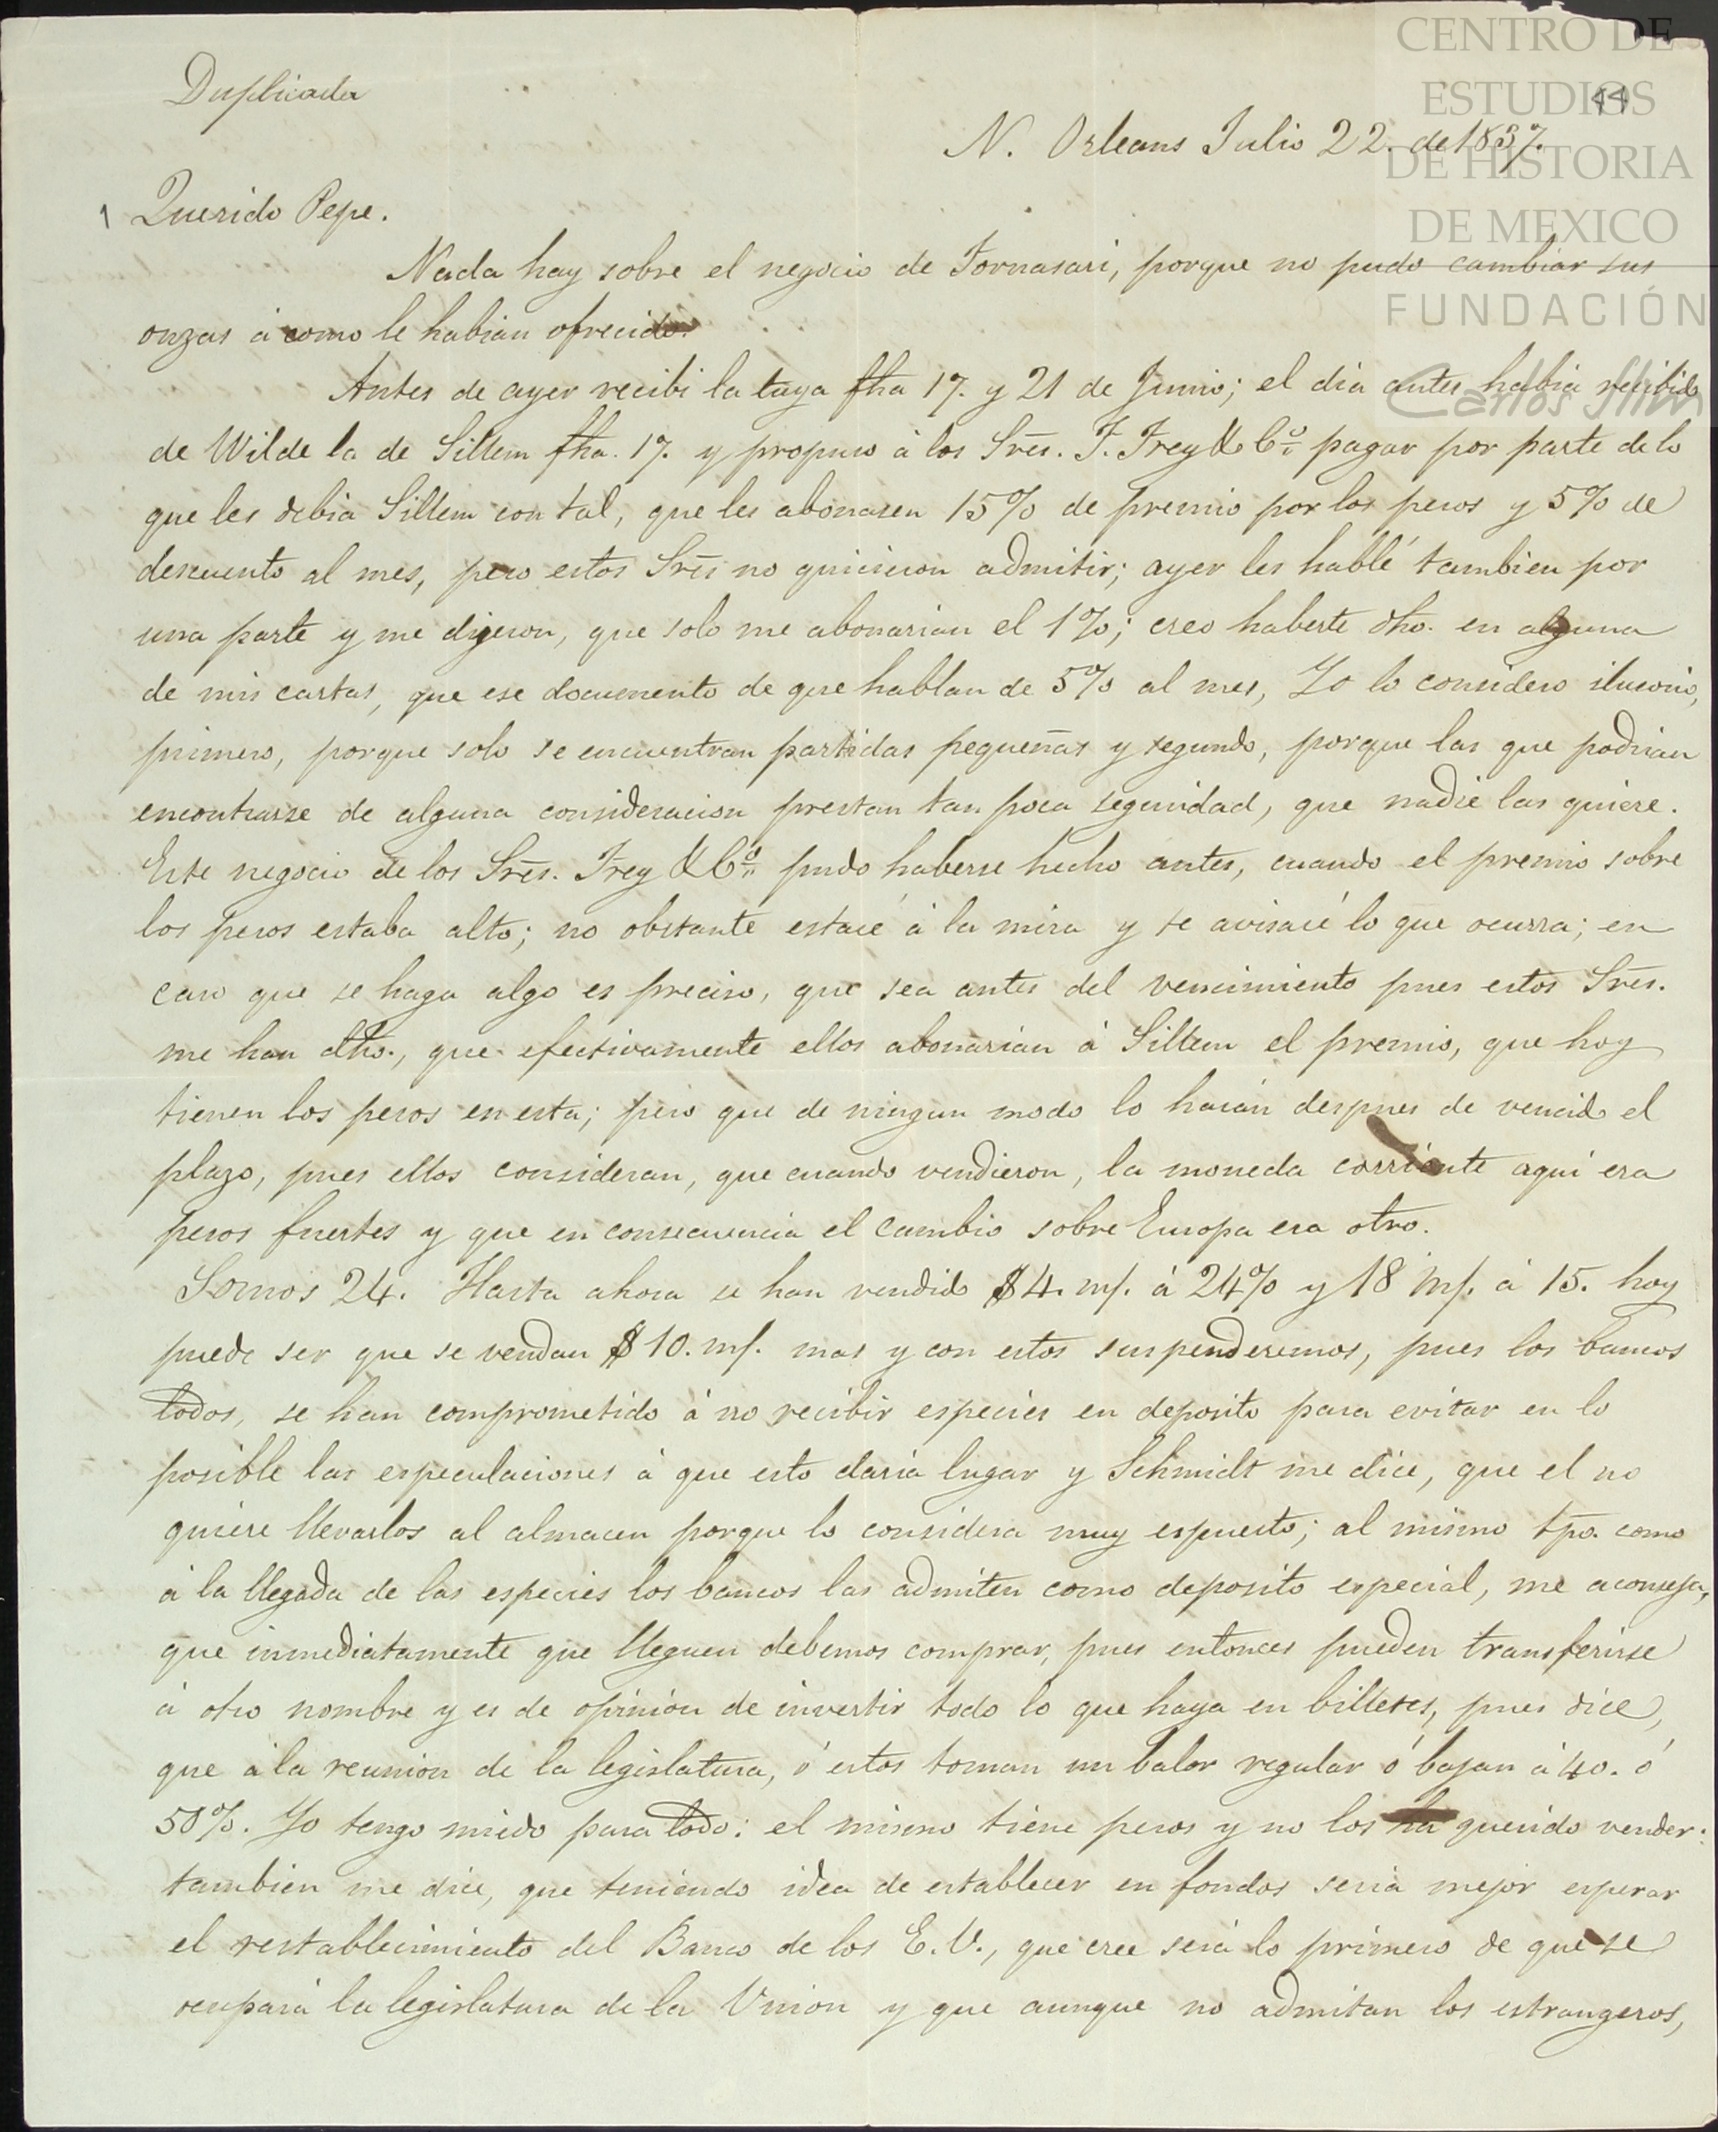 Duplicada
44
N. Orleans Julio 22. de 1837.
1 Querido Pepe.
Nada hay sobre el negocio de Fornasari, porque no pudo cambiar sus
onzas á como le habian ofrecido.
Antes de ayer recibi la tuya fha 17. y 21 de Junio; el dia antes habia recibido
de Wilde la de Sillem fha. 17. y propuso á los Sres. F. Frey & Co. pagar por parte de lo
que les debia Sillem con tal, que les abonasen 15% de premio por los pesos y 5% de
descuento al mes, pero estos Sres no quisieron admitir; ayer les hablé tambien por
una parte y me dijeron, que solo me abonarian el 1%; creo haberte dho. en alguna
de mis cartas, que ese documento de que hablan de 5% al mes, Yo lo considero ilusorio,
primero, porque solo se encuentran partidas pequeñas y segundo, porque las que podrian
encontrarse de alguna consideracion prestan tan poca seguridad, que nadie las quiere.
Este negocio de los Sres. Frey & Co. pudo haberse hecho antes, cuando el premio sobre
los pesos estaba alto; no obstante estaré á la mira y te avisaré lo que ocurra; en
caso que se haga algo es preciso, que sea antes del vencimiento pues estos Sres.
me han dho., que efectivamente ellos abonarian á Sillem el premio, que hoy
tienen los pesos en esta; pero que de ningun modo lo harán despues de vencido el
plazo, pues ellos consideran, que cuando vendieron, la moneda corriente aqui era
pesos fuertes y que en consecuencia el cambio sobre Europa era otro.
Somos 24. Hasta ahora se han vendido $4. m/. á 24% y 18 m/. á 15. hoy
puede ser que se vendan $10. m/. mas y con estos suspenderemos, pues los bancos
todos, se han comprometido á no recibir especies en deposito para evitar en lo
posible las especulaciones á que esto daria lugar y Schmidt me dice, que el no
quiere llevarlos al almacen porque lo considera muy espuesto; al mismo tpo. como
á la llegada de las especies los bancos las admiten como deposito especial, me aconseja,
que inmediatamente que lleguen debemos comprar, pues entonces pueden transferirse
á otro nombre y es de opinion de invertir todo lo que haya en billetes, pues dice,
que á la reunion de la legislatura, ó estos toman un balor regular ó bajan á 40. ó
50%. Yo tengo miedo para todo: el mismo tiene pesos y no los ha querido vender:
tambien me dice, que teniendo idea de establecer en fondos seria mejor esperar
el restablecimiento del Banco de los E.U., que cree será lo primero de que se
ocupará la legislatura de la Union y que aunque no admitan los estrangeros,
CENTRO DE
ESTUDIOS
DE HISTORIA
DE MEXICO
FUNDACIÓN
Carlos Slim